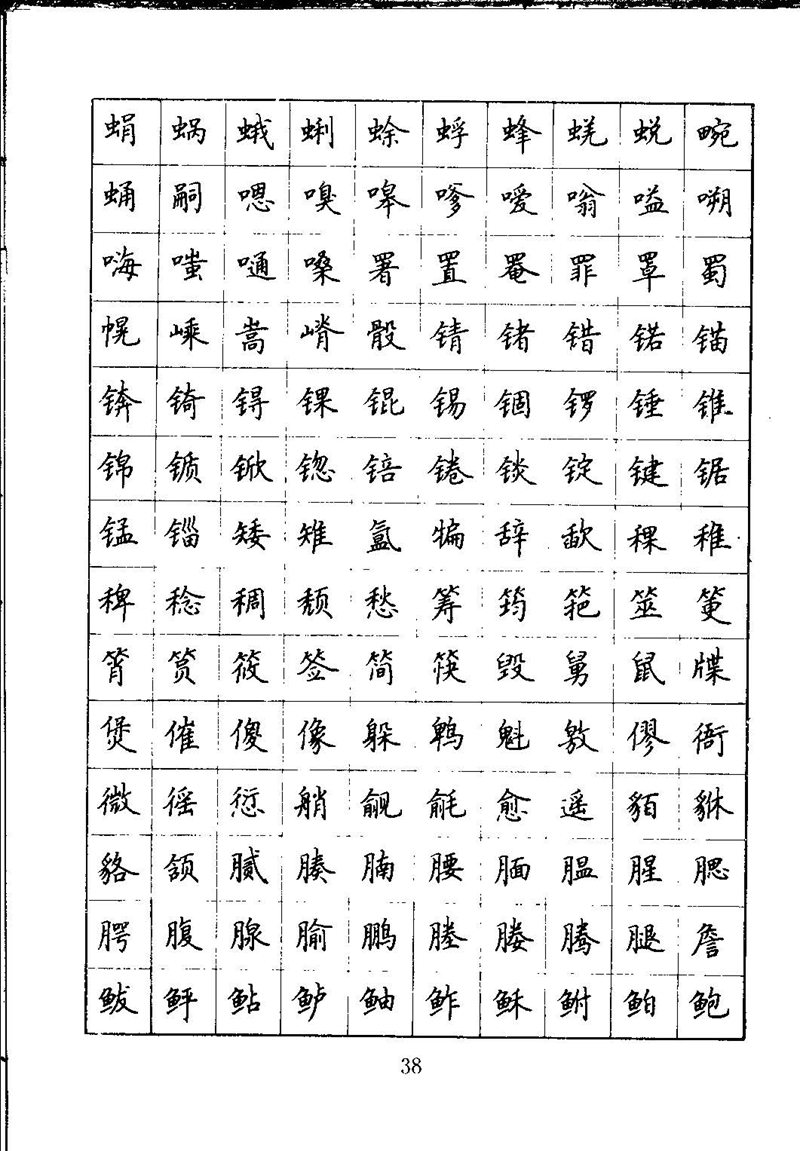 蜎 蜗 蛾 蜊 蜍 蜉 蜂 蜣 蜕 畹
蛹 嗣 嗯 嗅 嗥 嗲 嗳 嗡 嗌 嗍
嗨 嗤 嗵 嗓 署 置 罨 罪 罩 蜀
幌 嵊 嵩 嵴 骰 锖 锗 错 锘 锚
锛 锜 锝 锞 锟 锡 锢 锣 锤 锥
锦 锧 锨 锪 锫 锩 锬 锭 键 锯
锰 锱 矮 雉 氲 犏 辞 歃 稞 稚
稗 稔 稠 颓 愁 筹 筠 筢 筮 筻
筲 筼 筱 签 简 筷 毁 舅 鼠 牒
煲 催 傻 像 躲 鹎 魁 敫 僇 衙
微 徭 愆 艄 觎 毹 愈 遥 貊 貅
貉 颔 腻 腠 腩 腰 腼 腽 腥 腮
腭 腹 腺 腧 鹏 塍 媵 腾 腿 詹
鲅 鲆 鲇 鲈 鲉 鲊 稣 鲋 鲌 鲍
38